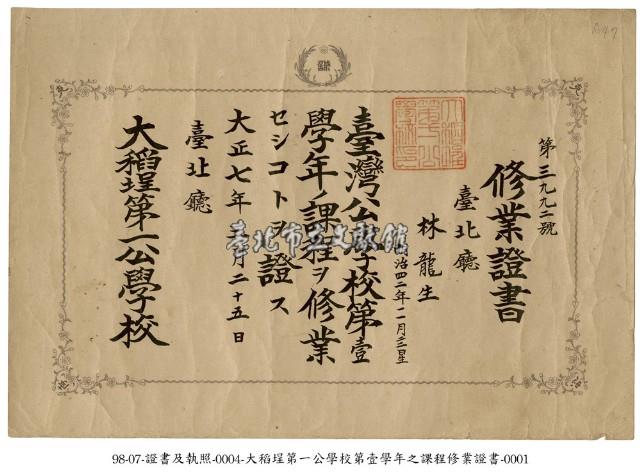 第三九九二號
修業證書
臺北廳
林龍生
治四二年 月三日生
臺灣公學校第壹
學年ノ課程ヲ修業
セシコトヲ證ス
大正七年 月二十五日
臺北廳
大稻埕第一公學校
臺北市立文獻館
98-07-證書及執照-0004-大稻埕第一公學校第壹學年之課程修業證書-0001